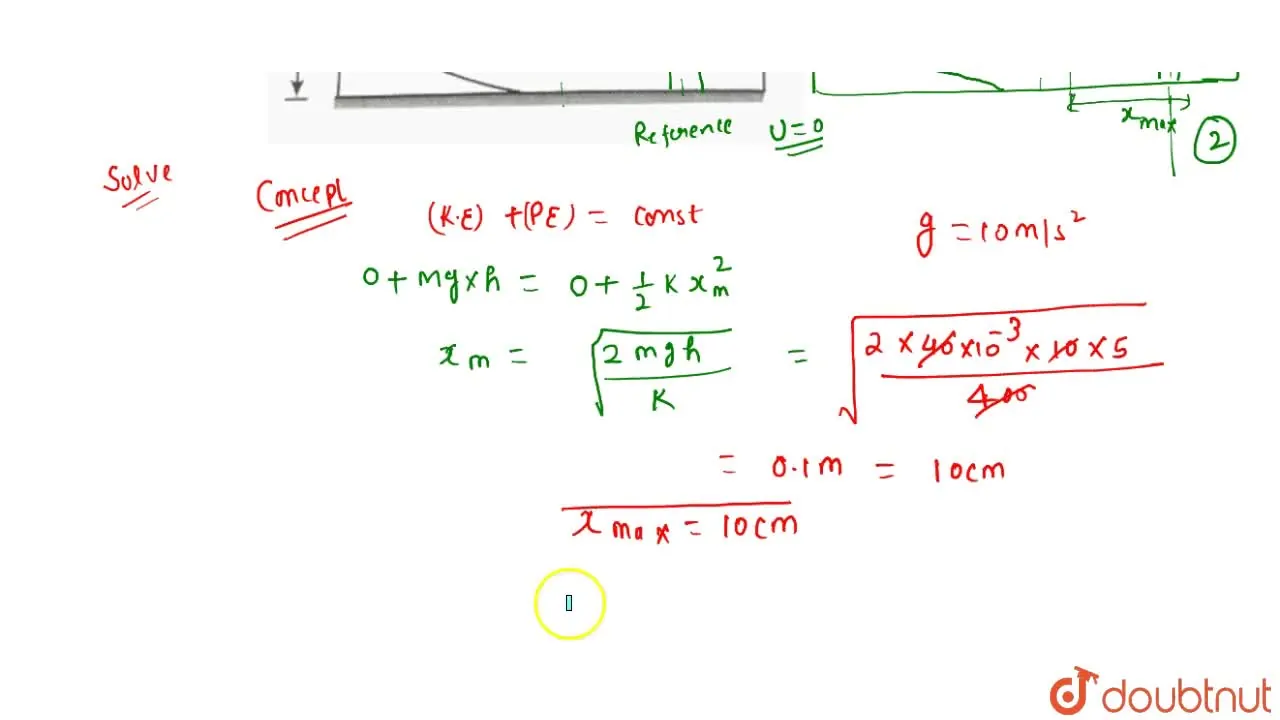 Reference U=0
x max
2
Solve
Concept
(K.E) +(PE) = const
g = 10 m/s²
0 + mg×h = 0 + 1/2 K x_m²
x_m = √(2 mgh / K) = √(2 × 40 × 10⁻³ × 10 × 5 / 400)
= 0.1m = 10cm
x max = 10cm
doubtnut